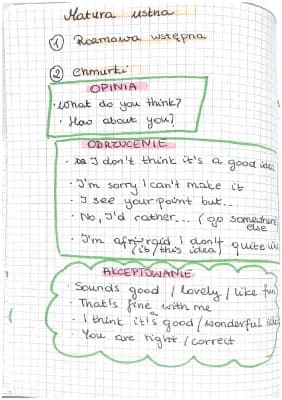 Matura ustna
1 Rozmowa wstępna
2 Chmurki
OPINIA
· What do you think?
· How about you?
ODRZUCENIE
· I don't think it's a good idea
· I'm sorry I can't make it
· I see your point but...
· No, I'd rather... (go somewhere
else
· I'm afraid I don't quite like
(it/this idea)
AKCEPTOWANIE
· Sounds good / lovely / like fun
· That's fine with me
· I think it's good/wonderful idea
· You are right / correct